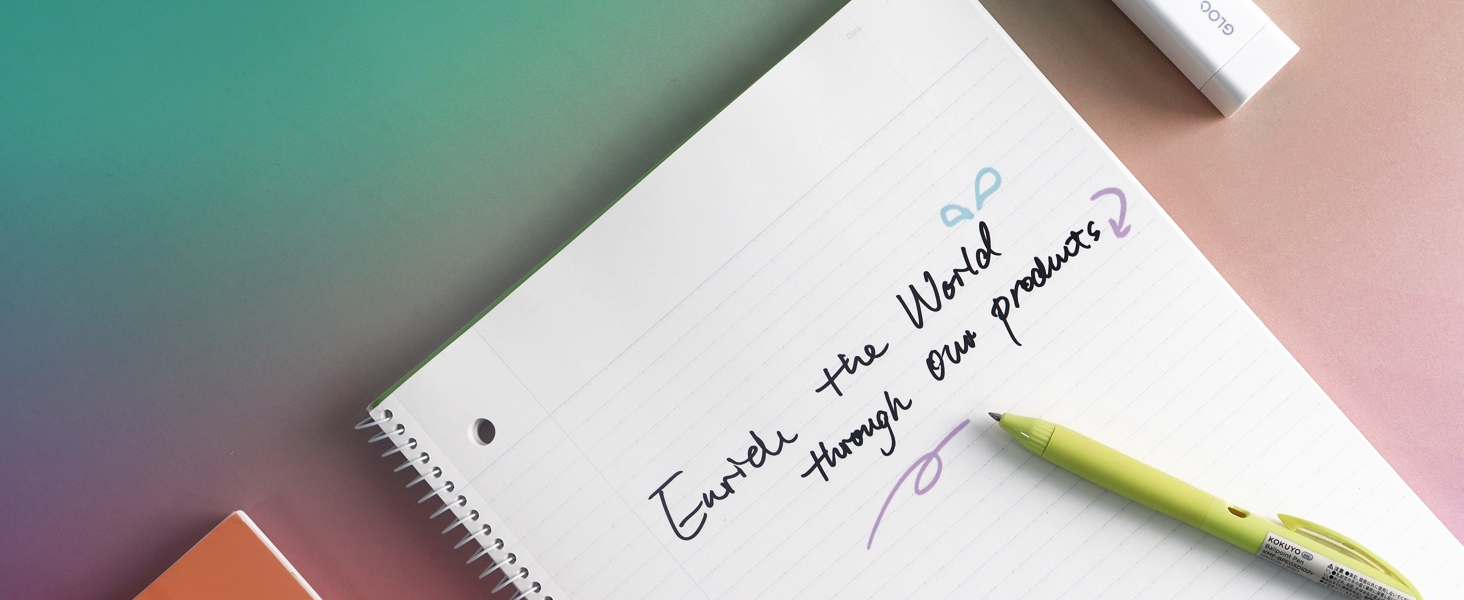 GLOO
Date
Enrich the World
through our products
KOKUYO
Ballpoint Pen